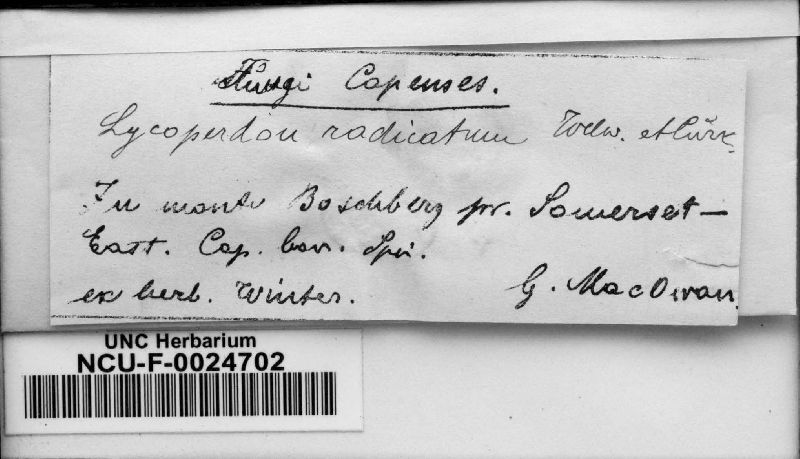 Fungi Capenses.
Lycoperdon radicatum Welw. et Curr.
In monte Boschberg pr. Somerset-
East. Cap. bon. Spei.
ex herb. Winter.
G. MacOwan.
UNC Herbarium
NCU-F-0024702